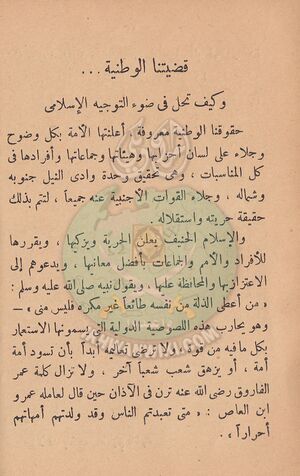 قضيتنا الوطنية ...
وكيف تحل فى ضوء التوجيه الإسلامى
حقوقنا الوطنية معروفة ، أعلنتها الأمة بكل وضوح
وجلاء على لسان أحزابها وهيئاتها وجماعاتها وأفرادها فى
كل المناسبات ، وهى تحقيق وحدة وادى النيل جنوبه
وشماله ، وجلاء القوات الأجنبية عنه جميعاً ، لتتم بذلك
حقيقة حريته واستقلاله .
والإسلام الحنيف يعلن الحرية ويزكيها ، ويقررها
للأفراد والأمم والجماعات بأفضل معانيها ، ويدعوهم إلى
الاعتزاز بها والمحافظة عليها ، ويقول نبيه صلى الله عليه وسلم :
« من أعطى الذلة من نفسه طائعاً غير مكره فليس منى » —
وهو يحارب هذه اللصوصية الدولية التى يسمونها الاستعمار
بكل ما فيه من قوة ، ولا ترضى تعاليمه أبداً بأن تسود أمة
أمة ، أو يرهق شعب شعباً آخر ، ولا تزال كلمة عمر
الفاروق رضى الله عنه ترن فى الآذان حين قال لعامله عمرو
ابن العاص : « متى تعبدتم الناس وقد ولدتهم أمهاتهم
أحراراً » .